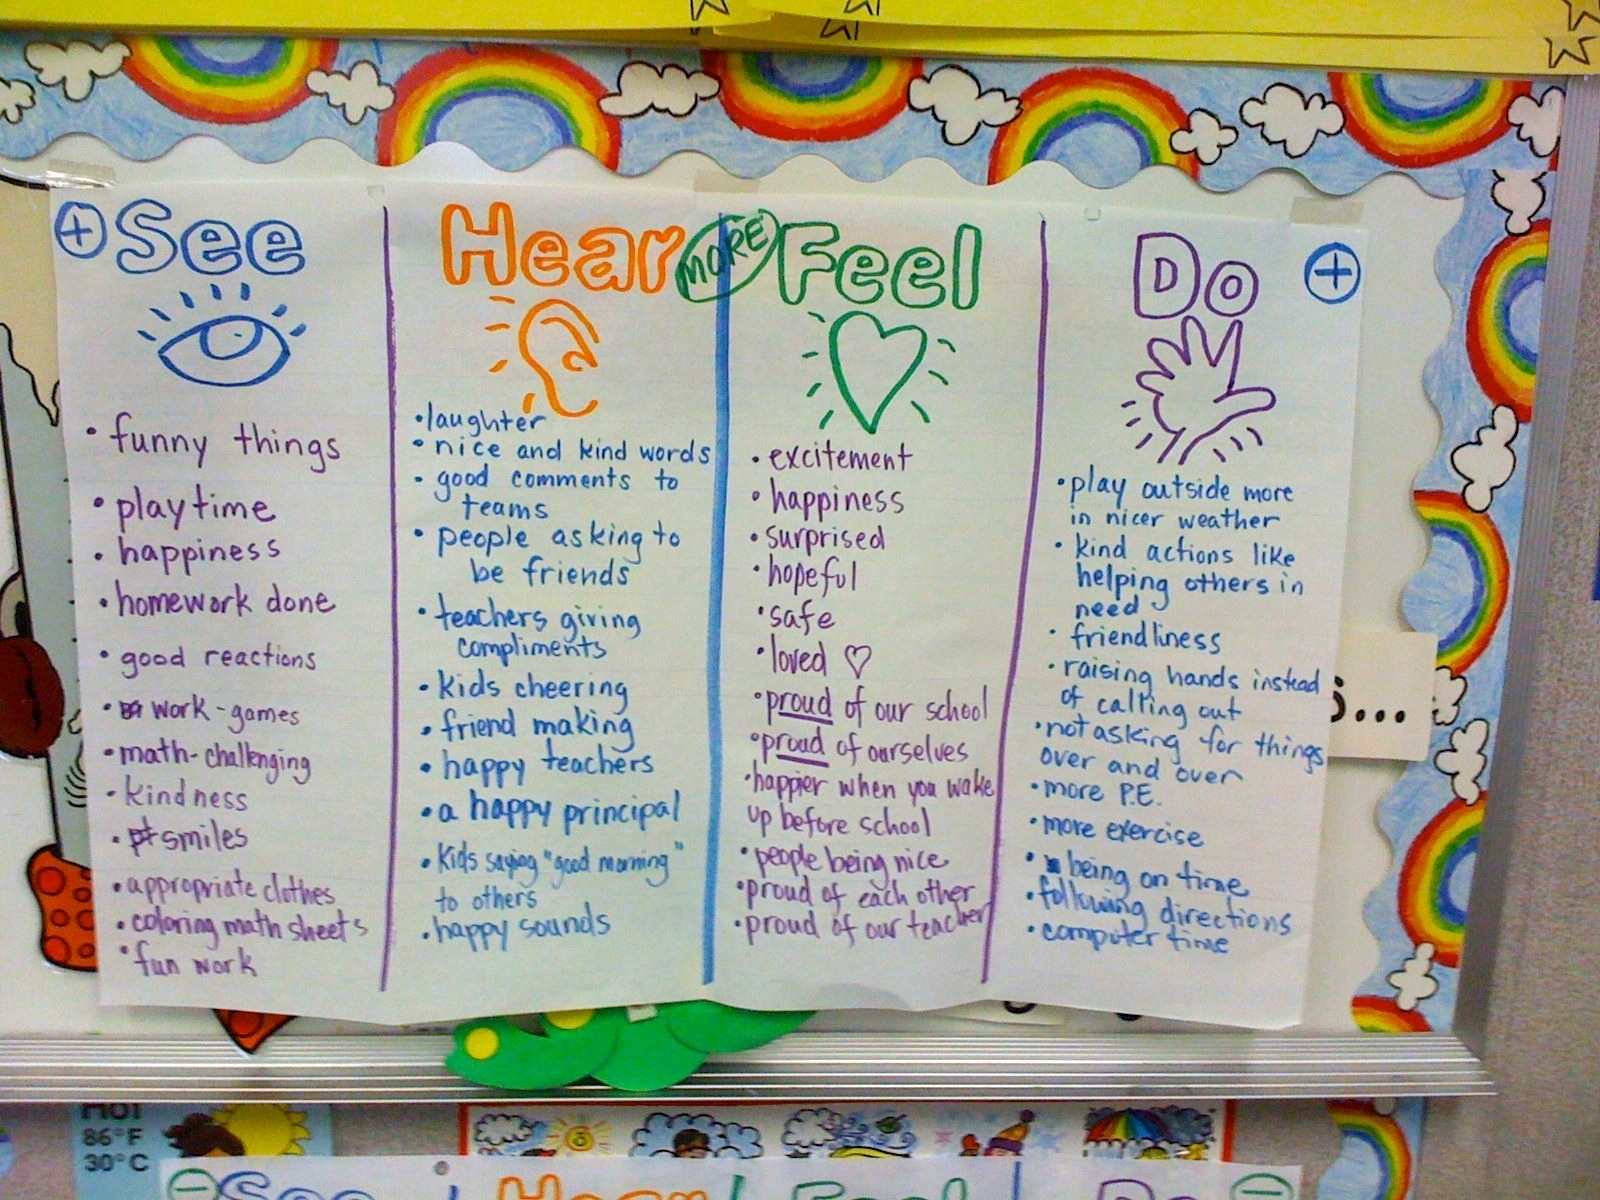 + See
funny things
playtime
happiness
homework done
good reactions
work - games
math - challenging
kindness
smiles
appropriate clothes
coloring math sheets
fun work
Hear
laughter
nice and kind words
good comments to
teams
people asking to
be friends
teachers giving
compliments
kids cheering
friend making
happy teachers
a happy principal
Kids saying "good morning"
to others
happy sounds
MORE
Feel
excitement
happiness
surprised
hopeful
safe
loved ♡
proud of our school
proud of ourselves
happier when you wake
up before school
people being nice
proud of each other
proud of our teacher
Do +
play outside more
in nicer weather
kind actions like
helping others in
need
friendliness
raising hands instead
of calling out
not asking for things
over and over
more P.E.
more exercise
being on time
following directions
computer time
s...
Hot
86°F
30°C
- See
Hear
Feel
Do -